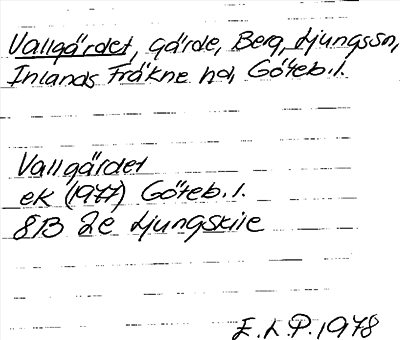 Vallgärdet, gärde, Berg, Ljungs sn,
Inlands Fräkne hd, Göteb. l.
Vallgärdet
ek (1977) Göteb. l.
8B 2e Ljungskile
E. L. P. 1978